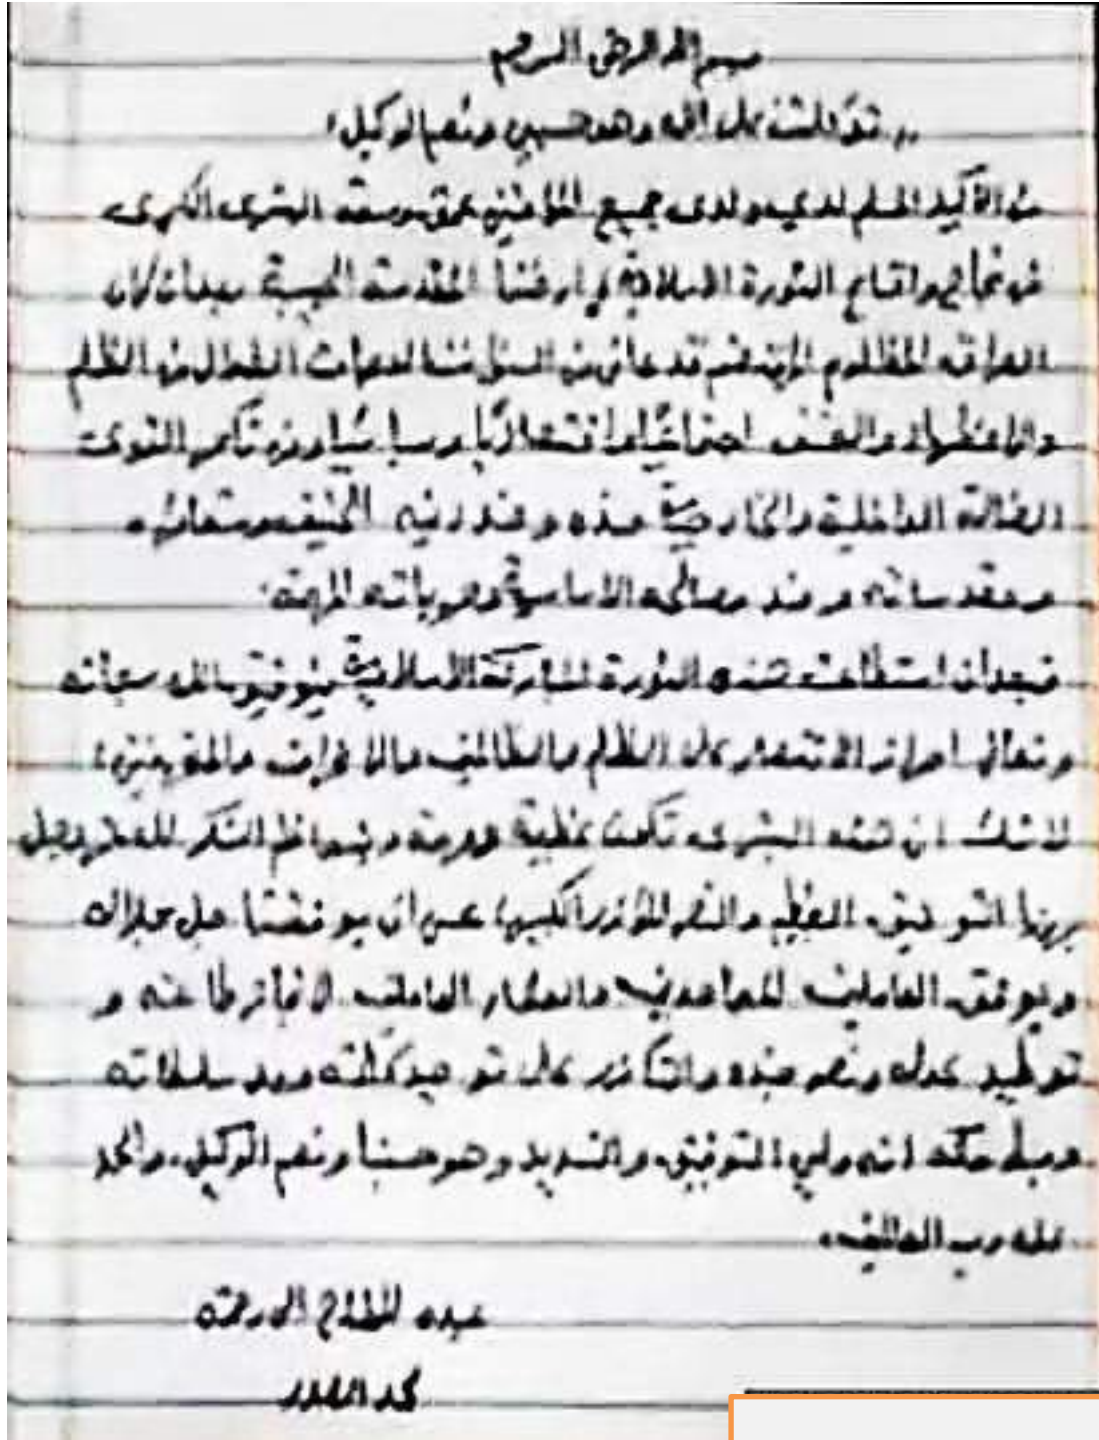 بسم الله الرحمن الرحيم
توكلت على الله وهو حسبي ونعم الوكيل
من الأكيد المسلم لدي ولدى جميع المؤمنين عمق وسعة البشرى الكبرى
في نجاح واقامة الثورة الاسلامية في ارضنا المقدسة الحبيبة بعد ان كان
العراق المظلوم قد عانى من الظلم
والاضطهاد والعنف اجتماعياً واقتصادياً وسياسياً ومن تآمر القوى
الضالة الداخلية والخارجية ضده وضد دينه الحنيف وشعائره
ومقدساته وضد مصالحه الاساسية المهمة
فبعد ان استطاعت هذه الثورة المباركة الاسلامية بتوفيق الله سبحانه
وتعالى احراز الانتصار على الظلم والظالمين
لا شك ان هذه البشرى تكون عظيمة ونحن الشكر لله عز وجل
بهذا التوفيق العظيم والنصر المؤزر الكبير عسى ان يوفقنا جل جلاله
ويوفق العاملين المجاهدين العاملين لانجاز طاعته و
توطيد عدله ونصر جنده والتآزر على توحيد كلمته ومد سلطانه
حكمه انه ولي التوفيق والتسديد وهو حسبنا ونعم الوكيل والحمد
لله رب العالمين
عبده المحتاج الى رحمته
محمد الصدر